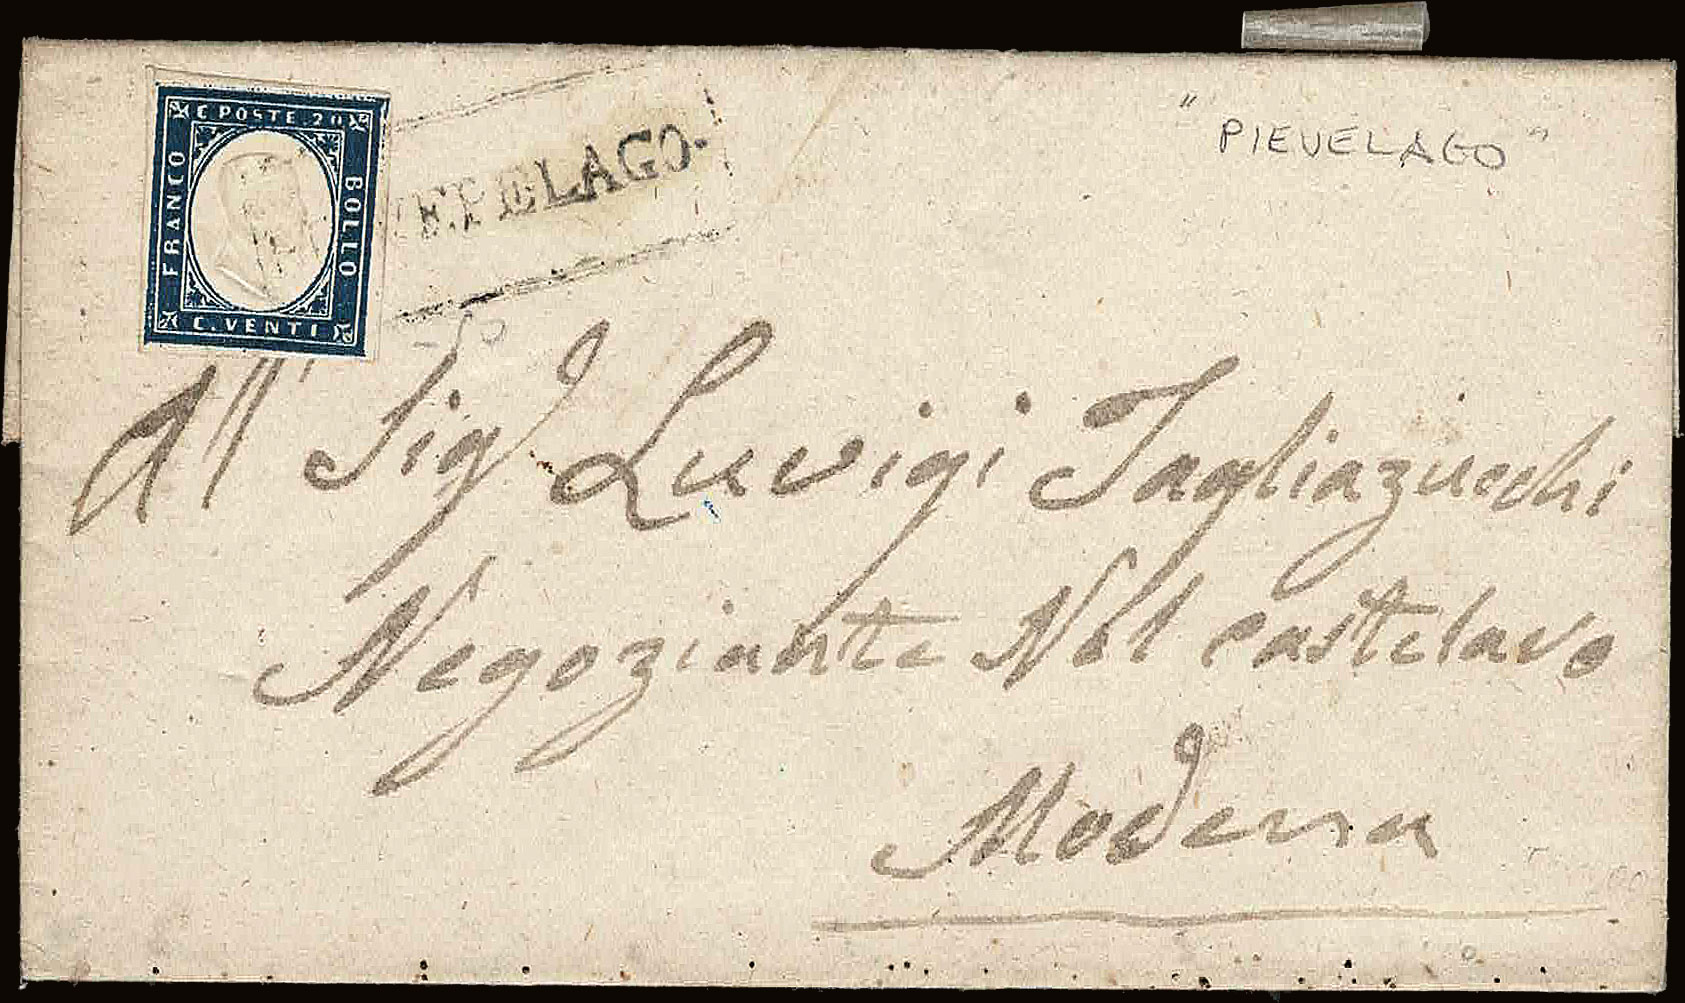 C. POSTE 20
FRANCO
BOLLO
C. VENTI
IEPELAGO.
"PIEVELAGO"
All Sig.r Luvigi Tagliazucchi
Negoziante Nel castelaro
Modena